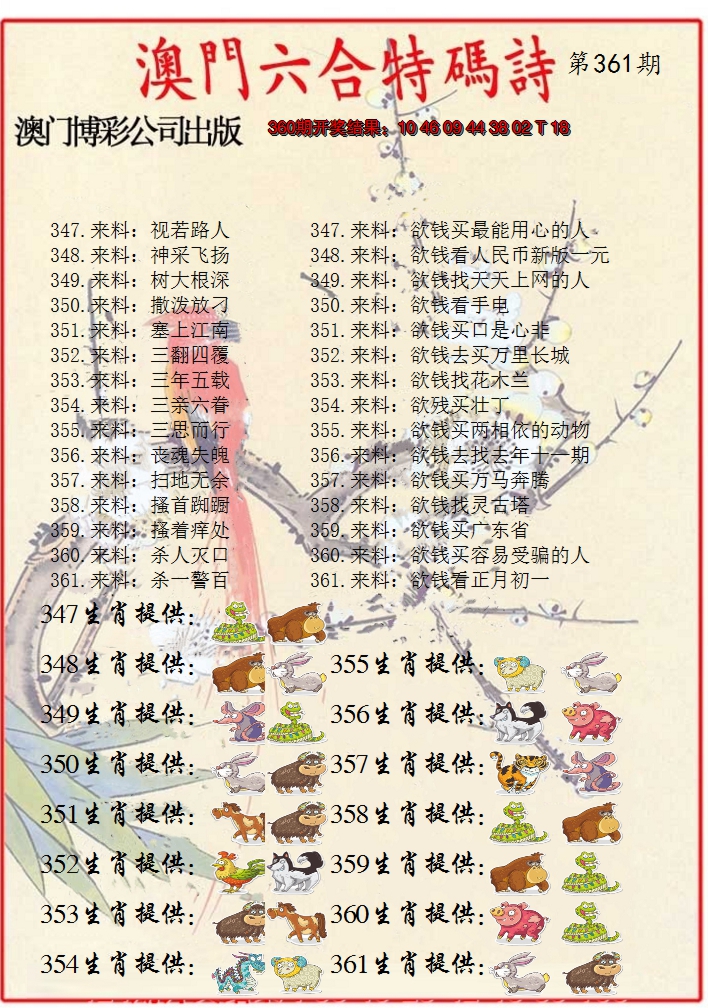 澳門六合特碼詩 第361期
澳门博彩公司出版 360期开奖结果：10 46 09 44 38 02 T 18
347.来料：视若路人 347.来料：欲钱买最能用心的人
348.来料：神采飞扬 348.来料：欲钱看人民币新版一元
349.来料：树大根深 349.来料：欲钱找天天上网的人
350.来料：撒泼放刁 350.来料：欲钱看手电
351.来料：塞上江南 351.来料：欲钱买口是心非
352.来料：三翻四覆 352.来料：欲钱去买万里长城
353.来料：三年五载 353.来料：欲钱找花木兰
354.来料：三亲六眷 354.来料：欲残买壮丁
355.来料：三思而行 355.来料：欲钱买两相依的动物
356.来料：丧魂失魄 356.来料：欲钱去找去年十一期
357.来料：扫地无余 357.来料：欲钱买万马奔腾
358.来料：搔首踟蹰 358.来料：欲钱找灵古塔
359.来料：搔着痒处 359.来料：欲钱买广东省
360.来料：杀人灭口 360.来料：欲钱买容易受骗的人
361.来料：杀一警百 361.来料：欲钱看正月初一
347生肖提供：
348生肖提供： 355生肖提供：
349生肖提供： 356生肖提供：
350生肖提供： 357生肖提供：
351生肖提供： 358生肖提供：
352生肖提供： 359生肖提供：
353生肖提供： 360生肖提供：
354生肖提供： 361生肖提供：